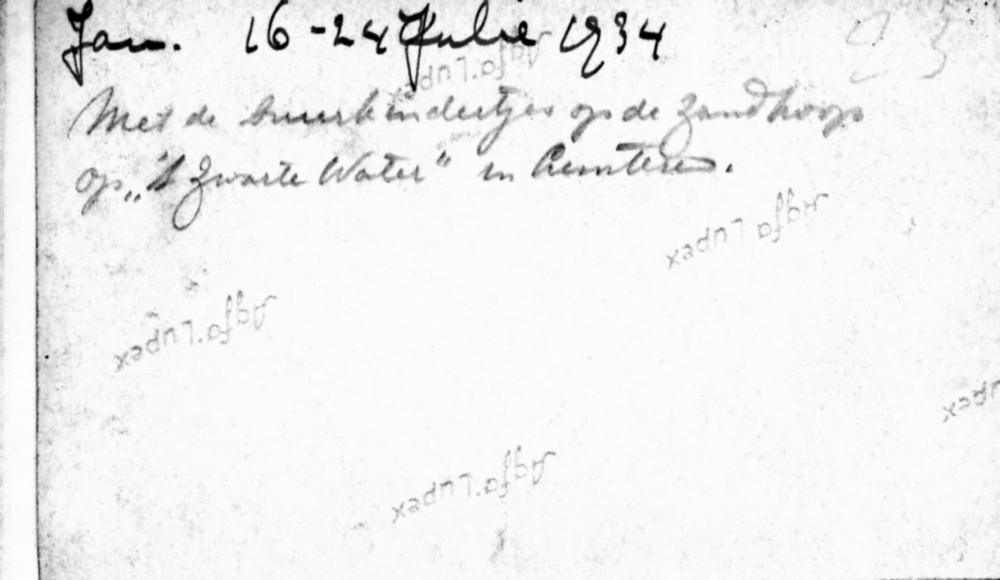 Jan. 16-24 Julie 1934
Met de buurkindertjes op de zandhoop
op „'t Zwarte Water" in Lunteren.
Agfa Lupex
Agfa Lupex
Agfa Lupex
Agfa Lupex